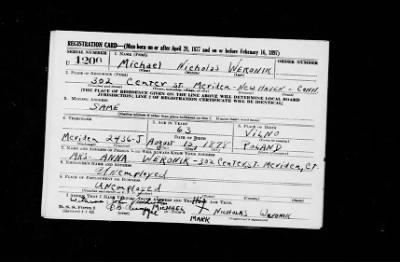 REGISTRATION CARD—(Men born on or after April 28, 1877 and on or before February 16, 1897)
SERIAL NUMBER 1. NAME (Print) ORDER NUMBER
U 1200 Michael Nicholas WERONIK
(First) (Middle) (Last)
2. PLACE OF RESIDENCE (Print)
302 Center st. Meriden - New Haven - Conn.
[THE PLACE OF RESIDENCE GIVEN ON THE LINE ABOVE WILL DETERMINE LOCAL BOARD
JURISDICTION; LINE 2 OF REGISTRATION CERTIFICATE WILL BE IDENTICAL]
3. MAILING ADDRESS
SAME
4. TELEPHONE 5. AGE IN YEARS 6. PLACE OF BIRTH
63 VILNO
DATE OF BIRTH
Meriden 2436-J August 12, 1878 POLAND
7. NAME AND ADDRESS OF PERSON WHO WILL ALWAYS KNOW YOUR ADDRESS
MRS. ANNA WERONIK - 302 Center St. Meriden, CT.
8. EMPLOYER'S NAME AND ADDRESS
Unemployed
9. PLACE OF EMPLOYMENT OR BUSINESS
Unemployed
I AFFIRM THAT I HAVE VERIFIED ABOVE ANSWERS AND THAT THEY ARE TRUE.
D. S. S. Form 1 MICHAEL NICHOLAS WERONIK
MARK